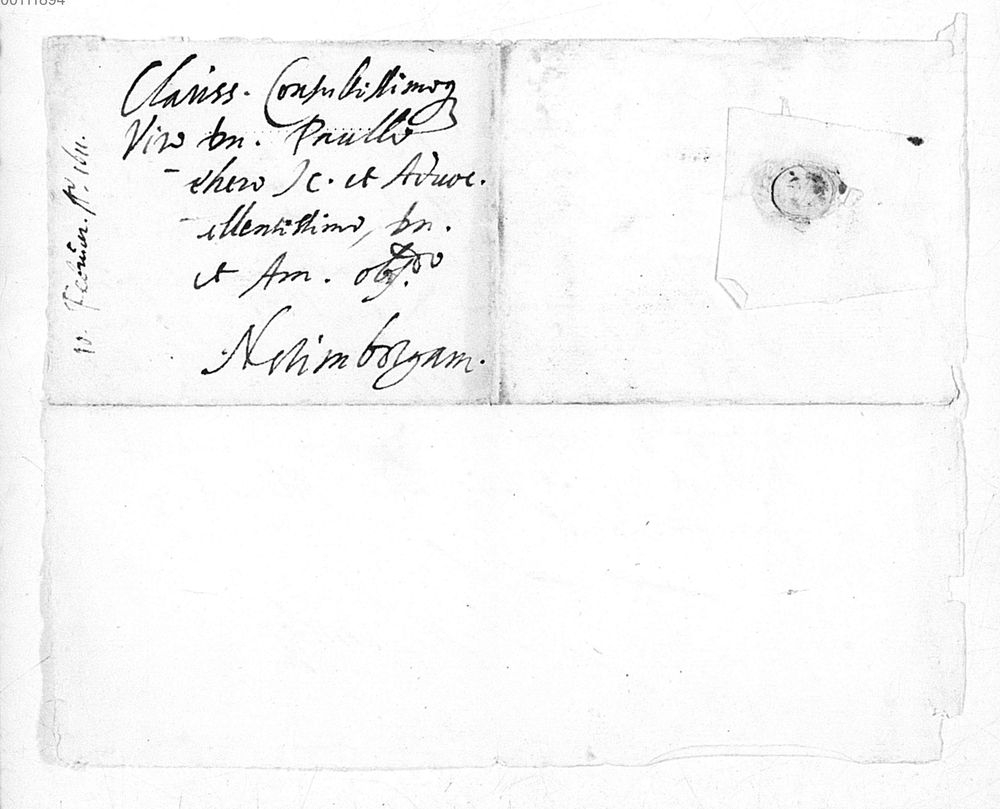 00111894
Clariss. Consultissimoq
Viro dn. Paullo
-chero Jc. et Advoc.
-ellentissimo, dn.
et Am. obsdo
Norimbergam.
1611.